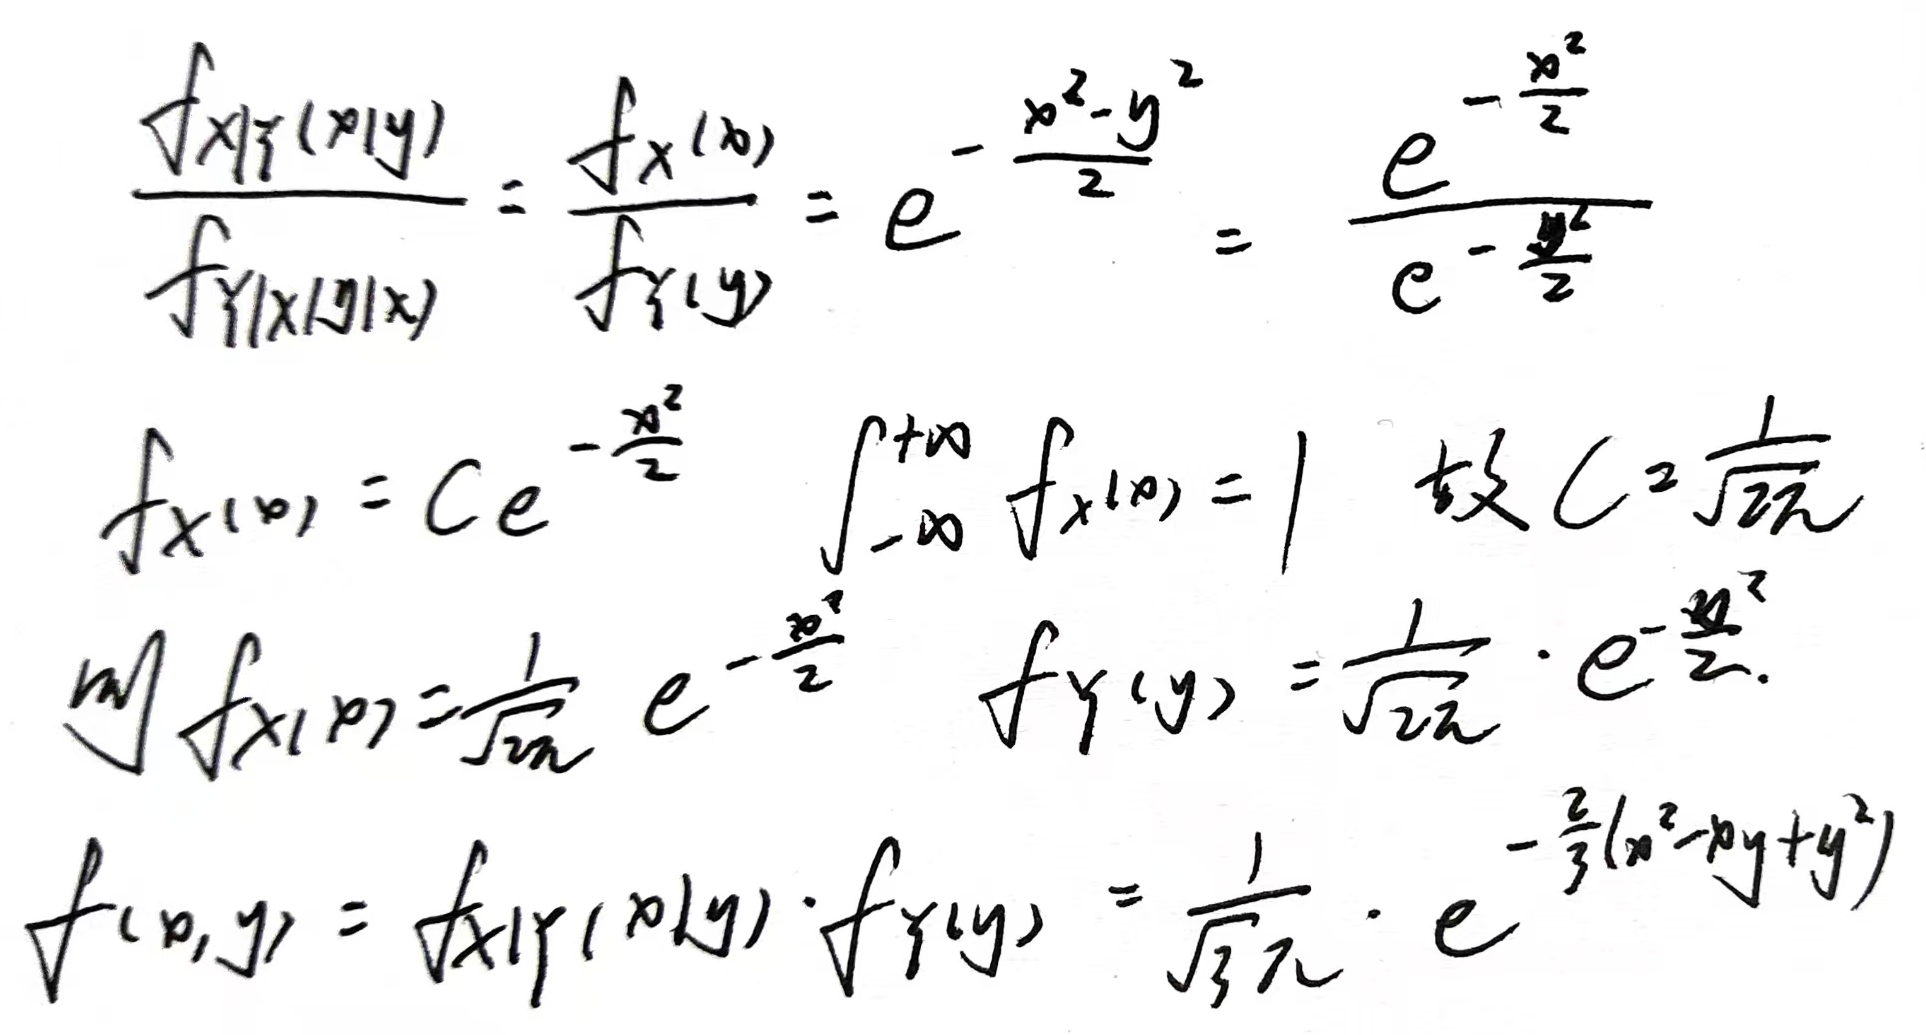 $\frac{f_{X|Y}(x|y)}{f_{Y|X}(y|x)} = \frac{f_X(x)}{f_Y(y)} = e^{-\frac{x^2-y^2}{2}} = \frac{e^{-\frac{x^2}{2}}}{e^{-\frac{y^2}{2}}}$
$f_X(x) = Ce^{-\frac{x^2}{2}}$ $\int_{-\infty}^{+\infty} f_X(x) = 1$ 故 $C = \frac{1}{\sqrt{2\pi}}$
则 $f_X(x) = \frac{1}{\sqrt{2\pi}} e^{-\frac{x^2}{2}}$ $f_Y(y) = \frac{1}{\sqrt{2\pi}} \cdot e^{-\frac{y^2}{2}}.$
$f(x,y) = f_{X|Y}(x|y) \cdot f_Y(y) = \frac{1}{\sqrt{3}\pi} \cdot e^{-\frac{2}{3}(x^2-xy+y^2)}$